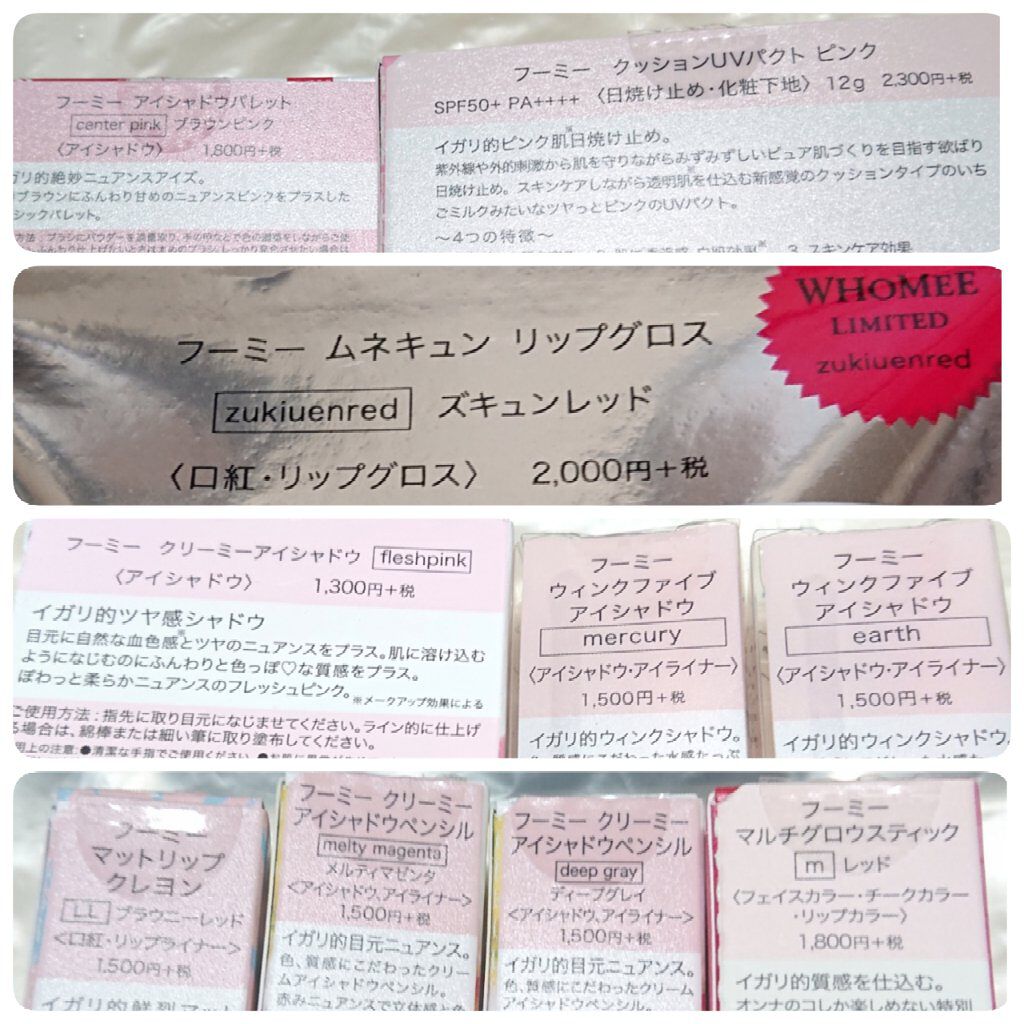 フーミー アイシャドウパレット
center pink ブラウンピンク
〈アイシャドウ〉 1,800円+税
ガリ的絶妙ニュアンスアイズ。
ブラウンにふんわり甘めのニュアンスピンクをプラスした
シックパレット。
フーミー クッションUVパクト ピンク
SPF50+ PA++++ 〈日焼け止め・化粧下地〉 12g 2,300円+税
イガリ的ピンク肌※日焼け止め。
紫外線や外的刺激から肌を守りながらみずみずしいピュア肌づくりを目指す欲ばり
日焼け止め。スキンケアしながら透明肌※を仕込む新感覚のクッションタイプのいち
ごミルクみたいなツヤっとピンクのUVパクト。
〜4つの特徴〜
3. スキンケア効果
フーミー ムネキュン リップグロス
zukiuenred ズキュンレッド
〈口紅・リップグロス〉 2,000円+税
WHOMEE
LIMITED
zukiuenred
フーミー クリーミーアイシャドウ fleshpink
〈アイシャドウ〉 1,300円+税
イガリ的ツヤ感シャドウ
目元に自然な血色感※とツヤのニュアンスをプラス。肌に溶け込む
ようになじむのにふんわりと色っぽ♡な質感をプラス。
ぽわっと柔らかニュアンスのフレッシュピンク。※メークアップ効果による
ご使用方法：指先に取り目元になじませてください。ライン的に仕上げ
る場合は、綿棒または細い筆に取り塗布してください。
用上の注意：●清潔な手指でご使用ください。
フーミー
ウィンクファイブ
アイシャドウ
mercury
〈アイシャドウ・アイライナー〉
1,500円+税
イガリ的ウィンクシャドウ。
フーミー
ウィンクファイブ
アイシャドウ
earth
〈アイシャドウ・アイライナー〉
1,500円+税
イガリ的ウィンクシャドウ
フーミー
マットリップ
クレヨン
LL ブラウニーレッド
<口紅・リップライナー>
1,500円+税
イガリ的鮮烈マット
フーミー クリーミー
アイシャドウペンシル
melty magenta
メルティマゼンタ
<アイシャドウ、アイライナー>
1,500円+税
イガリ的目元ニュアンス。
色、質感にこだわったクリー
ムアイシャドウペンシル。
赤みニュアンスで立体感と色
フーミー クリーミー
アイシャドウペンシル
deep gray
ディープグレイ
<アイシャドウ、アイライナー>
1,500円+税
イガリ的目元ニュアンス。
色、質感にこだわったクリーム
アイシャドウペンシル。
フーミー
マルチグロウスティック
m レッド
〈フェイスカラー・チークカラー
・リップカラー〉
1,800円+税
イガリ的質感を仕込む。
オンナのコしか楽しめない特別